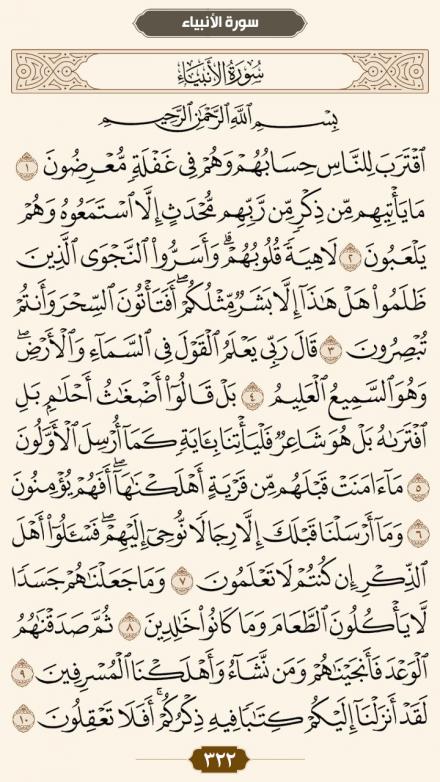 سورة الأنبياء
سُورَةُ الأَنبِيَاءِ
بِسْمِ ٱللَّهِ ٱلرَّحْمَٰنِ ٱلرَّحِيمِ
ٱقْتَرَبَ لِلنَّاسِ حِسَابُهُمْ وَهُمْ فِى غَفْلَةٍ مُّعْرِضُونَ ١
مَا يَأْتِيهِم مِّن ذِكْرٍ مِّن رَّبِّهِم مُّحْدَثٍ إِلَّا ٱسْتَمَعُوهُ وَهُمْ
يَلْعَبُونَ ٢ لَاهِيَةً قُلُوبُهُمْ ۗ وَأَسَرُّوا۟ ٱلنَّجْوَى ٱلَّذِينَ
ظَلَمُوا۟ هَلْ هَٰذَآ إِلَّا بَشَرٌ مِّثْلُكُمْ ۖ أَفَتَأْتُونَ ٱلسِّحْرَ وَأَنتُمْ
تُبْصِرُونَ ٣ قَالَ رَبِّى يَعْلَمُ ٱلْقَوْلَ فِى ٱلسَّمَآءِ وَٱلْأَرْضِ ۖ
وَهُوَ ٱلسَّمِيعُ ٱلْعَلِيمُ ٤ بَلْ قَالُوٓا۟ أَضْغَٰثُ أَحْلَٰمٍۭ بَلِ
ٱفْتَرَىٰهُ بَلْ هُوَ شَاعِرٌ فَلْيَأْتِنَا بِـَٔايَةٍ كَمَآ أُرْسِلَ ٱلْأَوَّلُونَ
٥ مَآ ءَامَنَتْ قَبْلَهُم مِّن قَرْيَةٍ أَهْلَكْنَٰهَآ ۖ أَفَهُمْ يُؤْمِنُونَ
٦ وَمَآ أَرْسَلْنَا قَبْلَكَ إِلَّا رِجَالًا نُّوحِىٓ إِلَيْهِمْ ۖ فَسْـَٔلُوٓا۟ أَهْلَ
ٱلذِّكْرِ إِن كُنتُمْ لَا تَعْلَمُونَ ٧ وَمَا جَعَلْنَٰهُمْ جَسَدًا
لَّا يَأْكُلُونَ ٱلطَّعَامَ وَمَا كَانُوا۟ خَٰلِدِينَ ٨ ثُمَّ صَدَقْنَٰهُمُ
ٱلْوَعْدَ فَأَنجَيْنَٰهُمْ وَمَن نَّشَآءُ وَأَهْلَكْنَا ٱلْمُسْرِفِينَ ٩
لَقَدْ أَنزَلْنَآ إِلَيْكُمْ كِتَٰبًا فِيهِ ذِكْرُكُمْ ۖ أَفَلَا تَعْقِلُونَ ١٠
٣٢٢